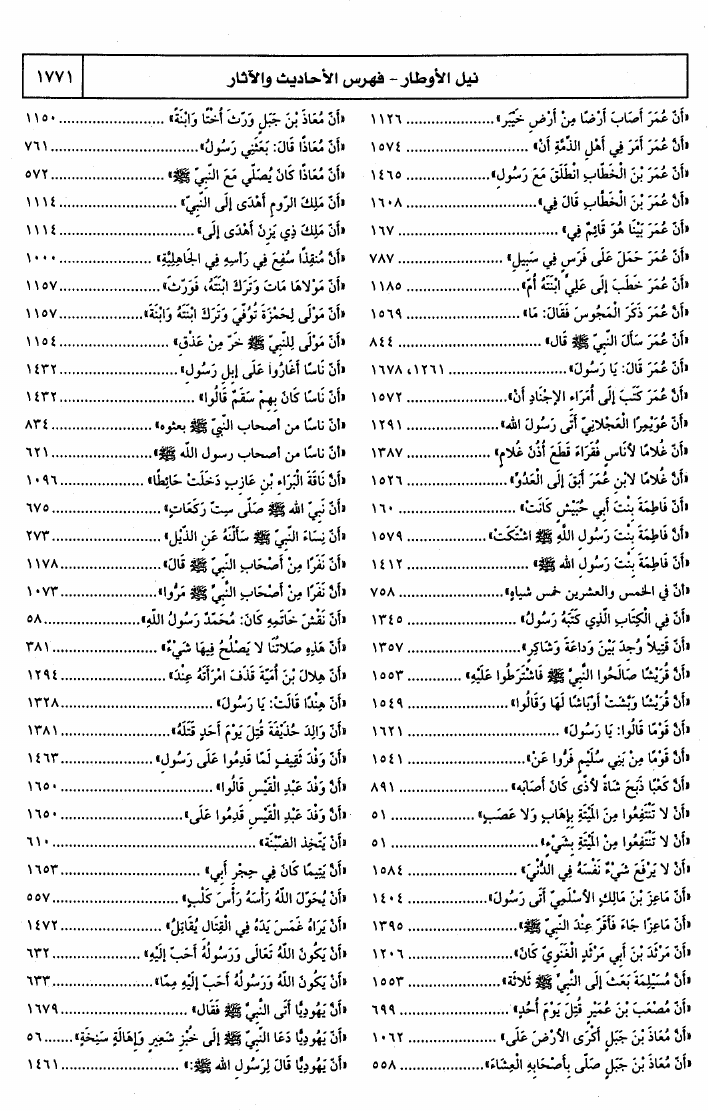 نيل الأوطار - فهرس الأحاديث والآثار
١٧٧١
«أَنَّ عُمَرَ أَصَابَ أَرْضًا مِنْ أَرْضِ خَيْبَر» ...................... ١١٢٦
«أَنَّ عُمَرَ أَمَرَ فِي أَهْلِ الذِّمَّةِ أَنْ» ...................... ١٥٧٤
«أَنَّ عُمَرَ بْنَ الْخَطَّابِ انْطَلَقَ مَعَ رَسُولِ» ...................... ١٤٦٥
«أَنَّ عُمَرَ بْنَ الْخَطَّابِ قَالَ فِي» ...................... ١٦٠٨
«أَنَّ عُمَرَ بَيْنَا هُوَ قَائِمٌ فِي» ...................... ١٦٧
«أَنَّ عُمَرَ حَمَلَ عَلَى فَرَسٍ فِي سَبِيلِ» ...................... ٧٨٧
«أَنَّ عُمَرَ خَطَبَ إِلَى عَلِيٍّ ابْنَتَهُ أُمَّ» ...................... ١١٨٥
«أَنَّ عُمَرَ ذَكَرَ الْمَجُوسَ فَقَالَ: مَا» ...................... ١٥٦٩
«أَنَّ عُمَرَ سَأَلَ النَّبِيَّ ﷺ قَال» ...................... ٨٤٤
«أَنَّ عُمَرَ قَالَ: يَا رَسُولَ» ...................... ١٢٦١، ١٦٧٨
«أَنَّ عُمَرَ كَتَبَ إِلَى أُمَرَاءِ الأَجْنَادِ أَنْ» ...................... ١٥٧٢
«أَنَّ عُوَيْمِرًا الْعَجْلَانِيَّ أَتَى رَسُولَ الله» ...................... ١٢٩١
«أَنَّ غُلَامًا لأُنَاسٍ فُقَرَاءَ قَطَعَ أُذُنَ غُلَامٍ» ...................... ١٣٨٧
«أَنَّ غُلَامًا لابْنِ عُمَرَ أَبَقَ إِلَى الْعَدُوِّ» ...................... ١٥٢٦
«أَنَّ فَاطِمَةَ بِنْتَ أَبِي حُبَيْشٍ كَانَتْ» ...................... ١٦٠
«أَنَّ فَاطِمَةَ بِنْتَ رَسُولِ اللَّهِ ﷺ اشْتَكَتْ» ...................... ١٥٧٩
«أَنَّ فَاطِمَةَ بِنْتَ رَسُولِ الله ﷺ» ...................... ١٤١٢
«أنَّ في الخمس والعشرين خمس شياهٍ» ...................... ٧٥٨
«أَنَّ فِي الْكِتَابِ الَّذِي كَتَبَهُ رَسُولُ» ...................... ١٣٤٥
«أَنَّ قَتِيلًا وُجِدَ بَيْنَ وَدَاعَةَ وَشَاكِرٍ» ...................... ١٣٥٧
«أَنَّ قُرَيْشًا صَالَحُوا النَّبِيَّ ﷺ فَاشْتَرَطُوا عَلَيْهِ» ...................... ١٥٥٣
«أَنَّ قُرَيْشًا وَبَّشَتْ أَوْبَاشًا لَهَا وَقَالُوا» ...................... ١٥٤٩
«أَنَّ قَوْمًا قَالُوا: يَا رَسُولَ» ...................... ١٦٢١
«أَنَّ قَوْمًا مِنْ بَنِي سُلَيْمٍ فَرُّوا عَنْ» ...................... ١٥٤١
«أَنَّ كَعْبًا ذَبَحَ شَاةً لأَذًى كَانَ أَصَابَه» ...................... ٨٩١
«أَنْ لا تَنْتَفِعُوا مِنَ الْمَيْتَةِ بِإِهَابٍ وَلا عَصَبٍ» ...................... ٥١
«أَنْ لا تَنْتَفِعُوا مِنَ الْمَيْتَةِ بِشَيْءٍ» ...................... ٥١
«أَنْ لا يَرْفَعَ شَيْءٌ نَفْسَهُ فِي الدُّنْيَ» ...................... ١٥٨٤
«أَنَّ مَاعِزَ بْنَ مَالِكٍ الأَسْلَمِيَّ أَتَى رَسُولَ» ...................... ١٤٠٤
«أَنَّ مَاعِزًا جَاءَ فَأَقَرَّ عِنْدَ النَّبِيِّ ﷺ» ...................... ١٣٩٥
«أَنَّ مَرْثَدَ بْنَ أَبِي مَرْثَدٍ الْغَنَوِيَّ كَانَ» ...................... ١٢٠٦
«أَنَّ مُسَيْلِمَةَ بَعَثَ إِلَى النَّبِيِّ ﷺ ثَلَاثَةَ» ...................... ١٥٥٣
«أَنَّ مُصْعَبَ بْنَ عُمَيْرٍ قُتِلَ يَوْمَ أُحُدٍ» ...................... ٦٩٩
«أَنَّ مُعَاذَ بْنَ جَبَلٍ أَكْرَى الأَرْضَ عَلَى» ...................... ١٠٦٢
«أَنَّ مُعَاذَ بْنَ جَبَلٍ صَلَّى بِأَصْحَابِهِ الْعِشَاءَ» ...................... ٥٥٨
«أَنَّ مُعَاذَ بْنَ جَبَلٍ وَرَّثَ أُخْتًا وَابْنَةً» ...................... ١١٥٠
«أَنَّ مُعَاذًا قَالَ: بَعَثَنِي رَسُولُ» ...................... ٧٦١
«أَنَّ مُعَاذًا كَانَ يُصَلِّي مَعَ النَّبِيِّ ﷺ» ...................... ٥٧٢
«أَنَّ مَلِكَ الرُّومِ أَهْدَى إِلَى النَّبِيِّ» ...................... ١١١٤
«أَنَّ مَلِكَ ذِي يَزِنَ أَهْدَى إِلَى» ...................... ١١١٤
«أَنَّ مُنْقِذًا سُفِعَ فِي رَأْسِهِ فِي الْجَاهِلِيَّةِ» ...................... ١٠٠٠
«أَنَّ مَوْلَاهَا مَاتَ وَتَرَكَ ابْنَتَهُ، فَوَرَّثَ» ...................... ١١٥٧
«أَنَّ مَوْلًى لِحَمْزَةَ تُوُفِّيَ وَتَرَكَ ابْنَتَهُ وَابْنَةَ» ...................... ١١٥٧
«أَنَّ مَوْلًى لِلنَّبِيِّ ﷺ خَرَّ مِنْ عَذْقِ» ...................... ١١٥٤
«أَنَّ نَاسًا أَغَارُوا عَلَى إِبِلِ رَسُولِ» ...................... ١٤٣٢
«أَنَّ نَاسًا كَانَ بِهِمْ سَقَمٌ قَالُوا» ...................... ١٤٣٢
«أنَّ ناسًا من أصحاب النبيّ ﷺ بعثوه» ...................... ٨٣٤
«أنَّ ناسًا من أصحاب رسول الله ﷺ» ...................... ٦٢١
«أَنَّ نَاقَةَ الْبَرَاءِ بْنِ عَازِبٍ دَخَلَتْ حَائِطًا» ...................... ١٠٩٦
«أَنَّ نَبِيَّ الله ﷺ صَلَّى سِتَّ رَكَعَاتٍ» ...................... ٦٧٥
«أَنَّ نِسَاءَ النَّبِيِّ ﷺ سَأَلْنَهُ عَنِ الذَّيْلِ» ...................... ٢٧٣
«أَنَّ نَفَرًا مِنْ أَصْحَابِ النَّبِيِّ ﷺ قَالَ» ...................... ١١٧٨
«أَنَّ نَفَرًا مِنْ أَصْحَابِ النَّبِيِّ ﷺ مَرُّوا» ...................... ١٠٧٣
«أَنَّ نَقْشَ خَاتَمِهِ كَانَ: مُحَمَّدٌ رَسُولُ اللَّهِ» ...................... ٥٨
«أَنَّ هَذِهِ صَلَاتُنَا لا يَصْلُحُ فِيهَا شَيْءٌ» ...................... ٣٨١
«أَنَّ هِلَالَ بْنَ أُمَيَّةَ قَذَفَ امْرَأَتَهُ عِنْدَ» ...................... ١٢٩٤
«أَنَّ هِنْدًا قَالَتْ: يَا رَسُولَ» ...................... ١٣٢٨
«أَنَّ وَالِدَ حُذَيْفَةَ قُتِلَ يَوْمَ أُحُدٍ قَتَلَهُ» ...................... ١٣٨١
«أَنَّ وَفْدَ ثَقِيفٍ لَمَّا قَدِمُوا عَلَى رَسُولِ» ...................... ١٤٦٣
«أَنَّ وَفْدَ عَبْدِ الْقَيْسِ قَالُوا» ...................... ١٦٥٠
«أَنَّ وَفْدَ عَبْدِ الْقَيْسِ قَدِمُوا عَلَى» ...................... ١٦٥٠
«أَنْ يَتَّخِذَ الضَّبَّنَةَ» ...................... ٦١٠
«أَنَّ يَتِيمًا كَانَ فِي حِجْرِ أَبِي» ...................... ١٦٥٣
«أَنْ يُحَوِّلَ اللَّهُ رَأْسَهُ رَأْسَ كَلْبٍ» ...................... ٥٥٧
«أَنْ يَرَاهُ غَمَسَ يَدَهُ فِي الْقِتَالِ يُقَاتِلُ» ...................... ١٤٧٢
«أَنْ يَكُونَ اللَّهُ تَعَالَى وَرَسُولُهُ أَحَبَّ إِلَيْهِ» ...................... ٦٣٢
«أَنْ يَكُونَ اللَّهُ وَرَسُولُهُ أَحَبَّ إِلَيْهِ مِمَّا» ...................... ٦٣٣
«أَنَّ يَهُودِيًّا أَتَى النَّبِيَّ ﷺ فَقَال» ...................... ١٦٧٩
«أَنَّ يَهُودِيًّا دَعَا النَّبِيَّ ﷺ إِلَى خُبْزِ شَعِيرٍ وَإِهَالَةٍ سَنِخَةٍ» ...... ٥٦
«أَنَّ يَهُودِيًّا قَالَ لِرَسُولِ الله ﷺ:» ...................... ١٤٦١